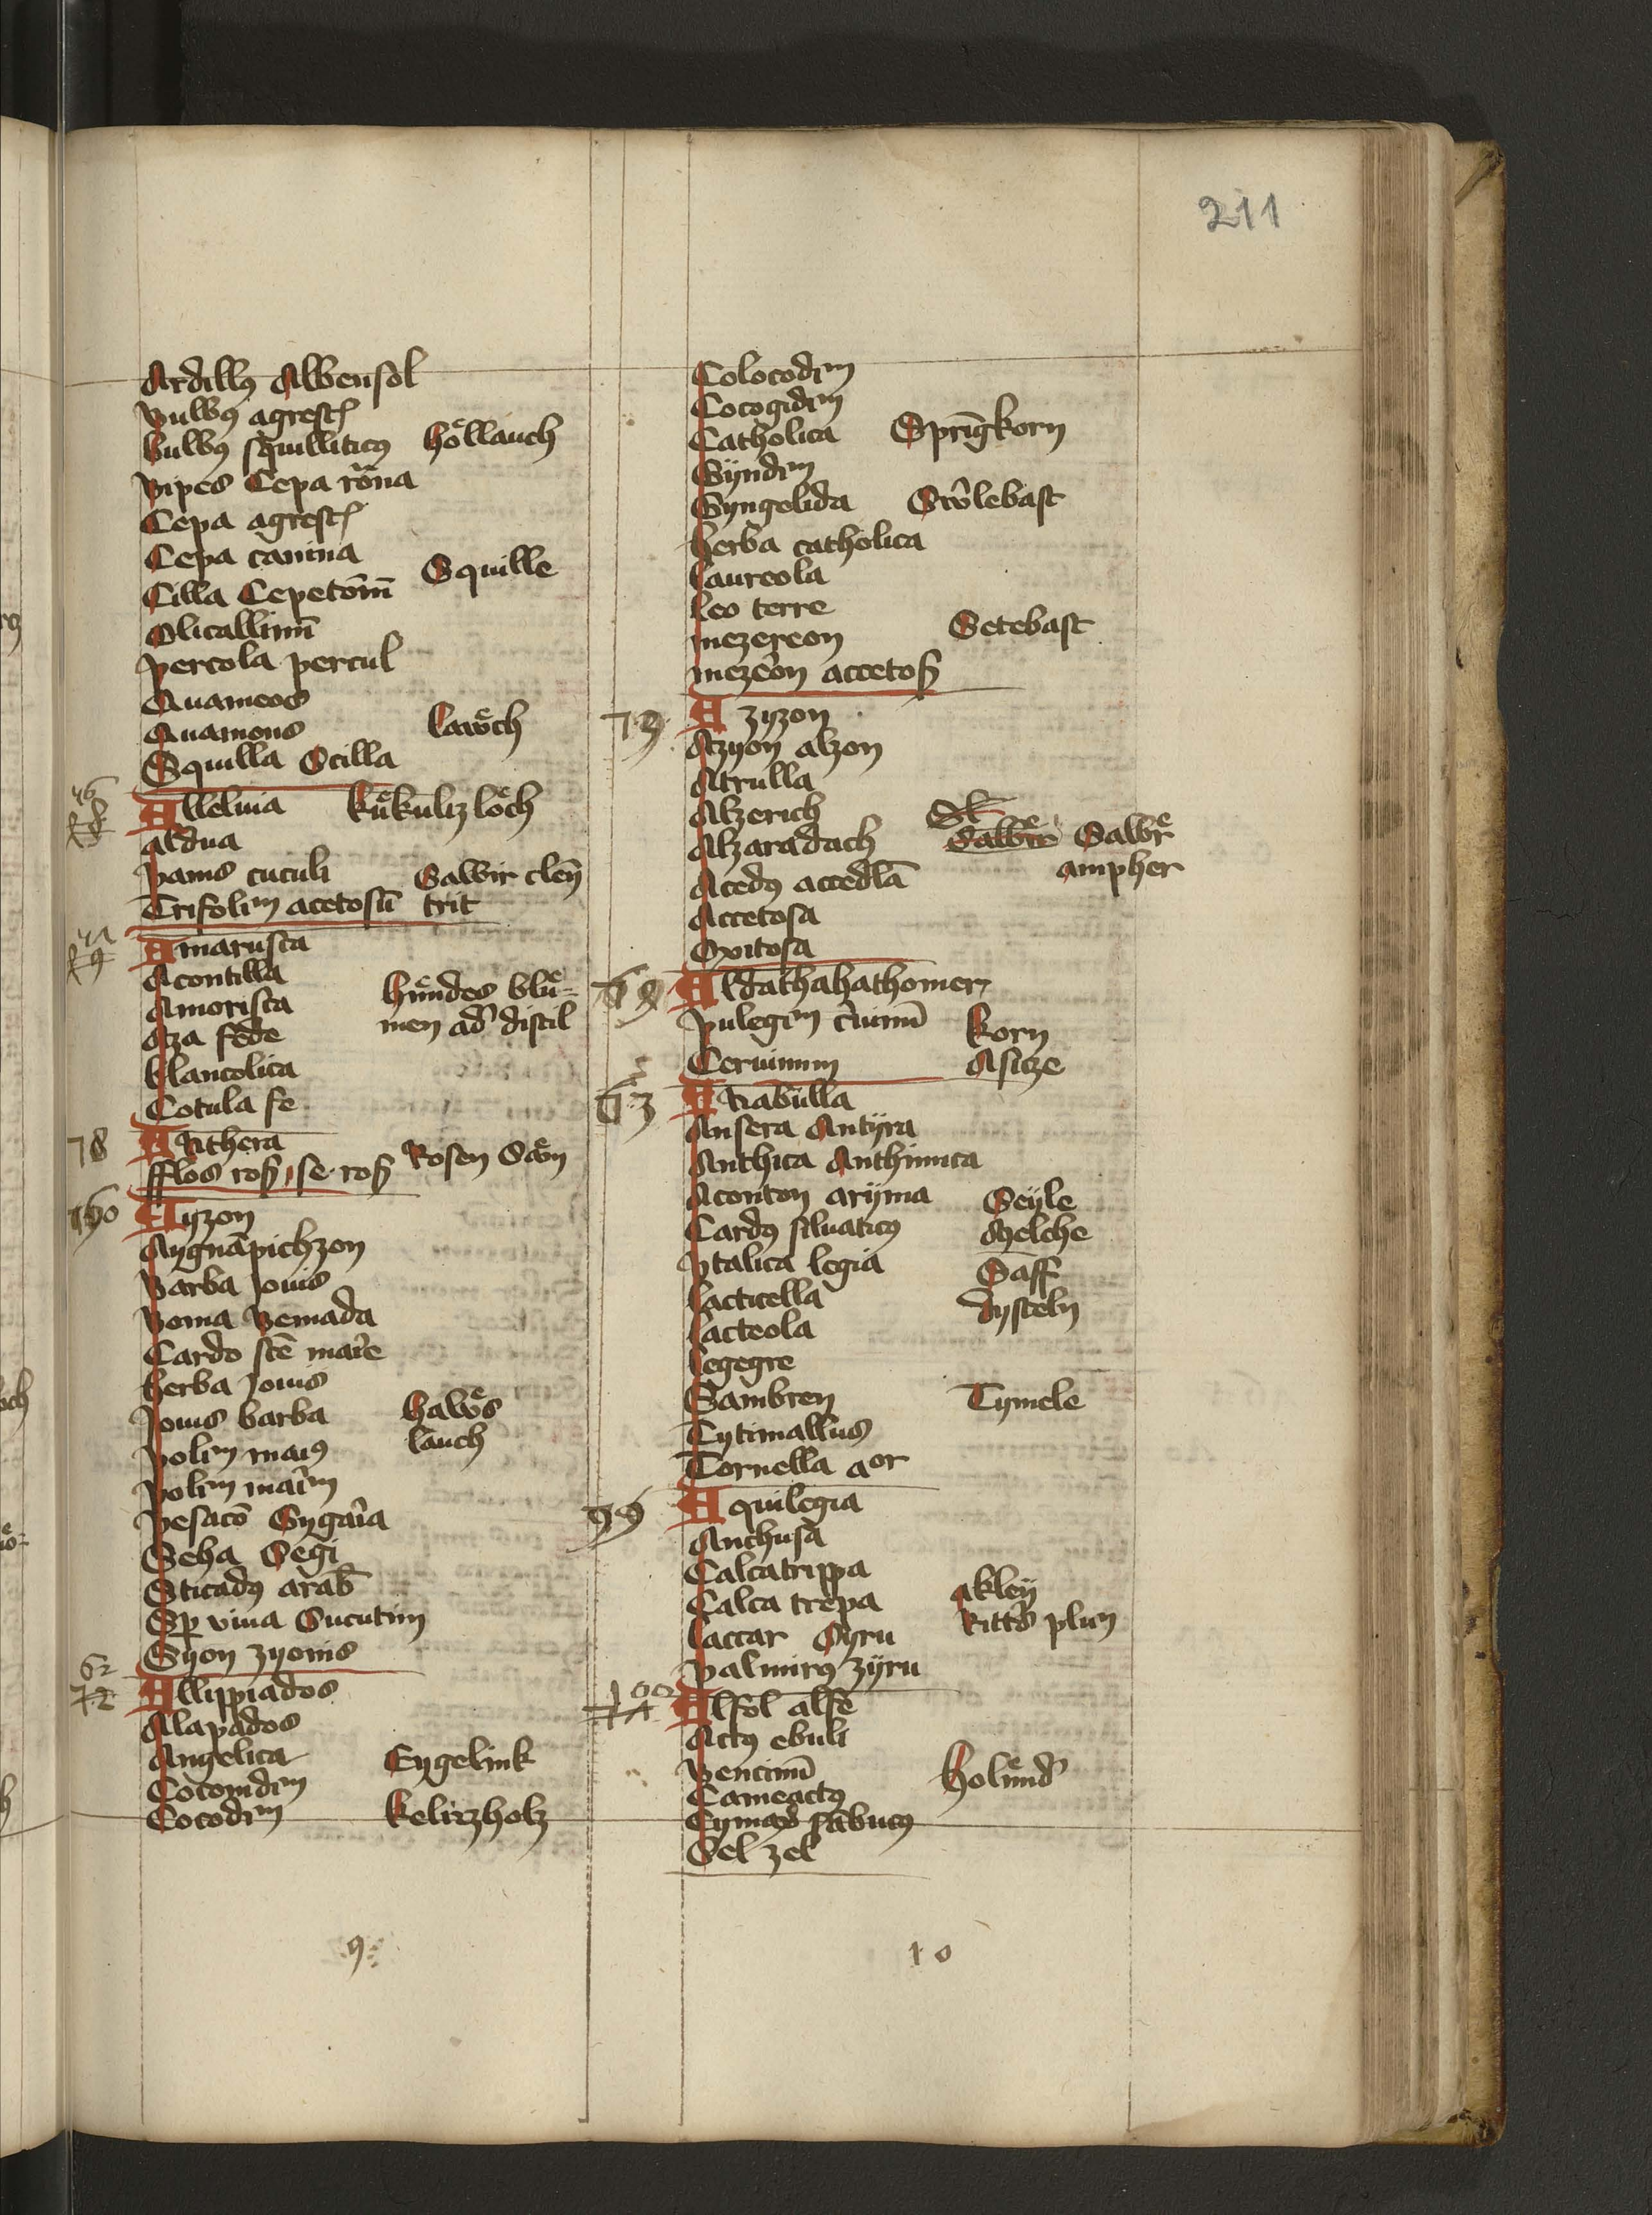 211
Ardillꝰ Albensol
Bulbꝰ agrestꝭ
bulbꝰ squilliticꝰ hoͤllauch
Bipes Cepa ro̅na
Cepa agrestꝭ
Cepa canina
Cilla Cepeto̅m̅ Squille
Olicallinu̅
percola percul
Quameos
Quamons lawͤch
Squilla Scilla
46
Alleluia kuͤkulizloͤch
aldua
panis cuculi Sawir cle̅n
Trifoliu̅ acetosu̅ trit
Amarusca
Acontilla
Amorisca huͤndes bluͤ=
Aza fede men ad' distil
blancolica
Cotula fe
78 Anthera
fflos roß, se. roß Rosen Soͤm
Ayzon
Aygna̅pichzon
Barba Jouis
Boma Bemada
Cardo sce̅ mar̾e
herba Jouis
Jouis barba hawͤs
poliu̅ maiꝰ lauch
poliu̅ mai̾m
pesaco̅ Sygar̾a
Seha Segi
Sticadꝰ arab̅
Sp̲ viua Sucutim
Syon zyonis
62
72 Allippiados
Alapados
Angelica Engelink
Cocomdiu̅
Cocodiu̅ kelirzholz
9
Colocodiu̅
Cocogidiu̅
Catholica Spri̅gkorn
Gÿndiu̅
Gyngelida Sco̅lebast
herba catholica
laureola
leo terre
mezereon Setebast
meze̾on accetoß
79 Azyzon
Azyon alzon
Atrulla
Alzerich
Alzaradach Sawrͤ
Acedꝰ accedla̅ ampher
Accetosa
Oxitosa
Aldathahathomer
pulegiu̅ c̾uinu̅ korn
Ceruinum Asitze
63 Anabulla
Ansera Antÿra
Anthica Anthinnca
Aconton arÿma Seÿle
Cardꝰ siluaticꝰ Melche
ytalica legia Saff
lacticella dysteln
lacteola
legegre
Gambren Tymele
Tytimallus
Tornella aor
99 Aquilegia
Anchusa
Calcatrippa
Calca trepa akleÿ
laccar Syru Ritt's plum
palmirꝰ zÿru
100
Alfol alfe
Actꝰ ebuli
Bencinu̅ holuͤnd'
Cameactꝰ
Cymax sabucꝰ
Sel zel
10